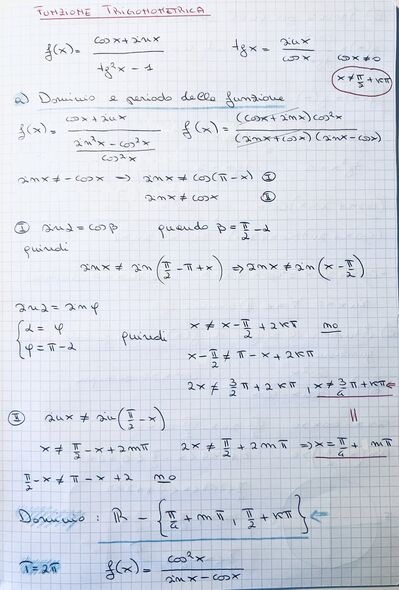 FUNZIONE TRIGONOMETRICA
f(x) = (cosx + sinx) / (tg²x - 1)    tgx = sinx / cosx    cosx ≠ 0
x ≠ π/2 + kπ
a) Dominio e periodo della funzione
f(x) = (cosx + sinx) / ((sin²x - cos²x) / cos²x)    f(x) = ((cosx + sinx) cos²x) / ((sinx + cosx)(sinx - cosx))
sinx ≠ - cosx ⇒ sinx ≠ cos(π - x) Ⓘ
sinx ≠ cosx Ⅱ
Ⓘ sinα = cosβ    quando β = π/2 - α
quindi
sinx ≠ sin(π/2 - π + x) ⇒ sinx ≠ sin(x - π/2)
sinα = sinφ
{ α = φ    quindi    x ≠ x - π/2 + 2kπ    no
φ = π - α    x - π/2 ≠ π - x + 2kπ
2x ≠ 3/2 π + 2kπ, x ≠ 3/4 π + kπ ←
=
Ⅱ sinx ≠ sin(π/2 - x)
x ≠ π/2 - x + 2mπ    2x ≠ π/2 + 2mπ ⇒ x = π/4 + mπ
π/2 - x ≠ π - x + 2    no
Dominio : ℝ - { π/4 + mπ, π/2 + kπ } ←
T = 2π    f(x) = cos²x / (sinx - cosx)